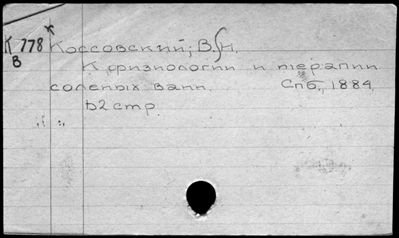 К 778 Коссовский, В. Н.
В К физиологии и терапии
соленых ванн. Спб., 1884.
62 стр.